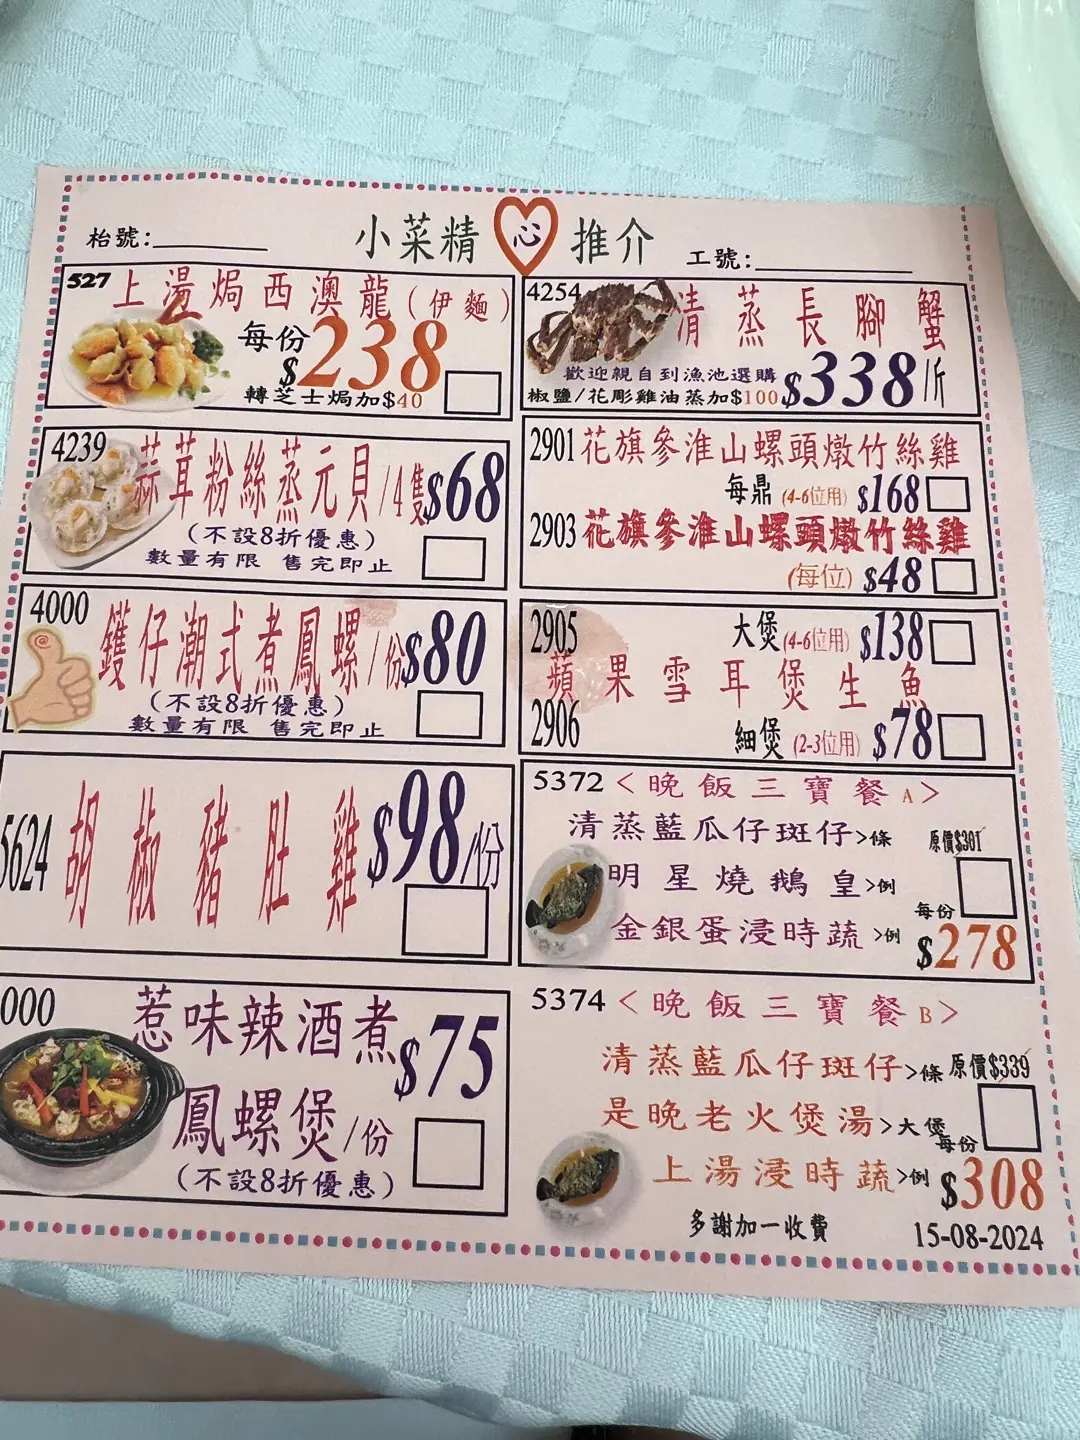 枱號:
小菜精心推介
工號:
527 上湯焗西澳龍(伊麵)
每份$238
轉芝士焗加$40
4239
蒜茸粉絲蒸元貝/4隻$68
(不設8折優惠)
數量有限 售完即止
4000
鑊仔潮式煮鳳螺/份$80
(不設8折優惠)
數量有限 售完即止
5624 胡椒豬肚雞$98/份
000
惹味辣酒煮$75
鳳螺煲/份
(不設8折優惠)
4254 清蒸長腳蟹
歡迎親自到漁池選購
椒鹽/花彫雞油蒸加$100 $338/斤
2901 花旗參淮山螺頭燉竹絲雞
每鼎(4-6位用) $168
2903 花旗參淮山螺頭燉竹絲雞
(每位) $48
2905 大煲(4-6位用) $138
蘋果雪耳煲生魚
2906 細煲(2-3位用) $78
5372 <晚飯三寶餐A>
清蒸藍瓜仔斑仔>條 原價$301
明星燒鵝皇>例
每份
金銀蛋浸時蔬>例 $278
5374 <晚飯三寶餐B>
清蒸藍瓜仔斑仔>條 原價$339
是晚老火煲湯>大煲
每份
上湯浸時蔬>例 $308
多謝加一收費
15-08-2024